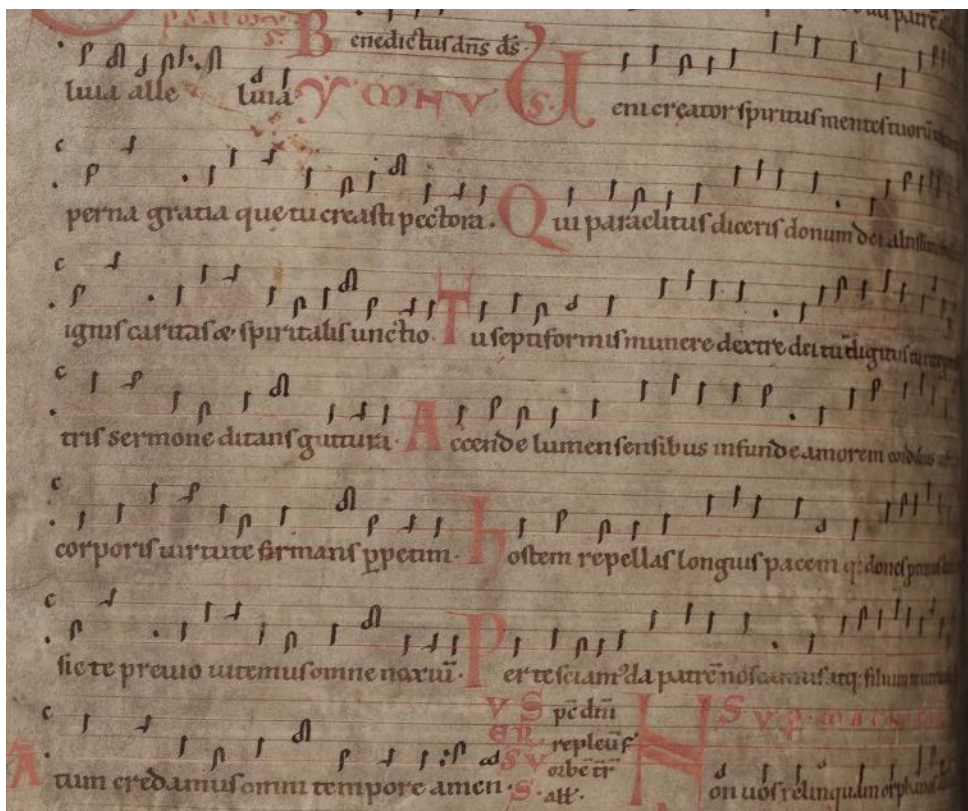 psalmus
s. Benedictus dn̄s ds̄
luia alle luia. YMNVS. Ueni creator spiritus mentes tuorū
perna gratia que tu creasti pectora. Qui paraclitus diceris donum dei altissimi
ignis caritas & spiritalis unctio. Tu septiformis munere dextre dei tu digitus
tris sermone ditans guttura. Accende lumen sensibus infunde amorem cordibus
corporis uirtute firmans ꝑpetim. hostem repellas longius pacem q: dones
sic te preuio uitemus omne noxiuī. Per te sciam᾽ da patrē noscamus atq: filium
VERSVS. sp̄c dn̄i
repleuῑ
orbē tr̄r̄
S. all'.
tum credamus omni tempore amen. Non uos relinquam orphanos